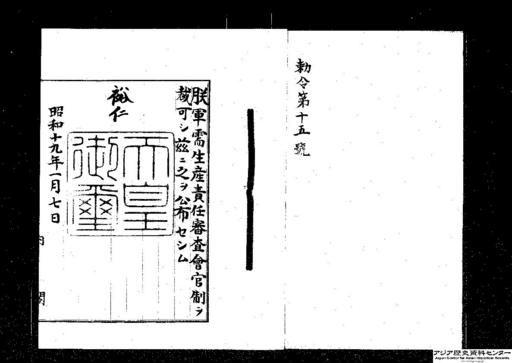 勅令第十五號
朕軍需生産責任審査會官制ヲ
裁可シ茲ニ之ヲ公布セシム
裕仁
天皇
御璽
昭和十九年一月七日
内 閣
アジア歴史資料センター
Japan Center for Asian Historical Records